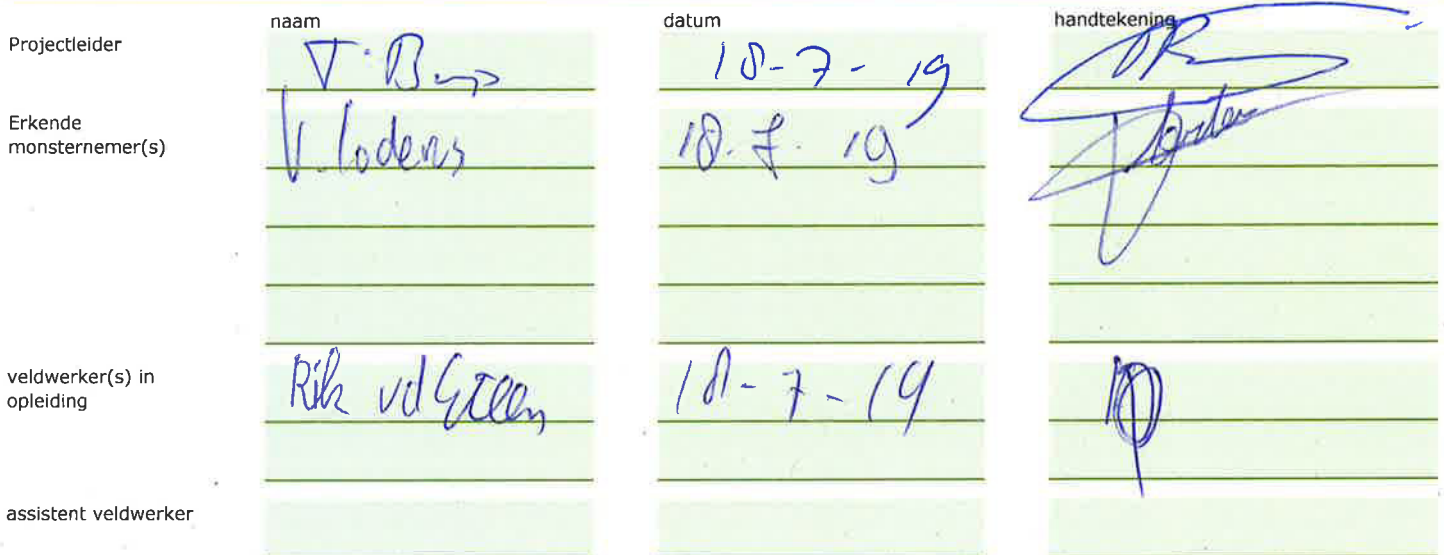 naam datum handtekening
Projectleider T. B 18-7-19
Erkende
monsternemer(s) V. Loders 18.7.19
veldwerker(s) in
opleiding Rik vd 18-7-19
assistent veldwerker